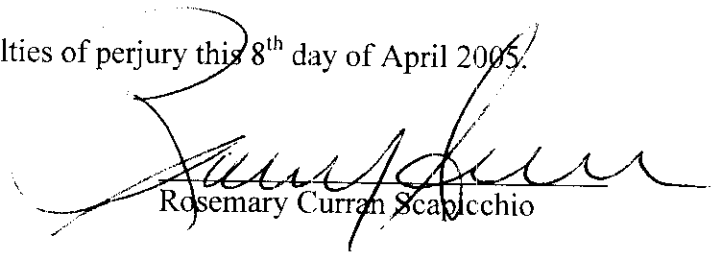 lties of perjury this 8th day of April 2005.
Rosemary Curran Scapicchio